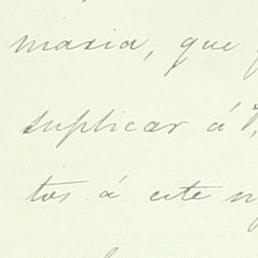 masia, que
suplicar á
tos á este